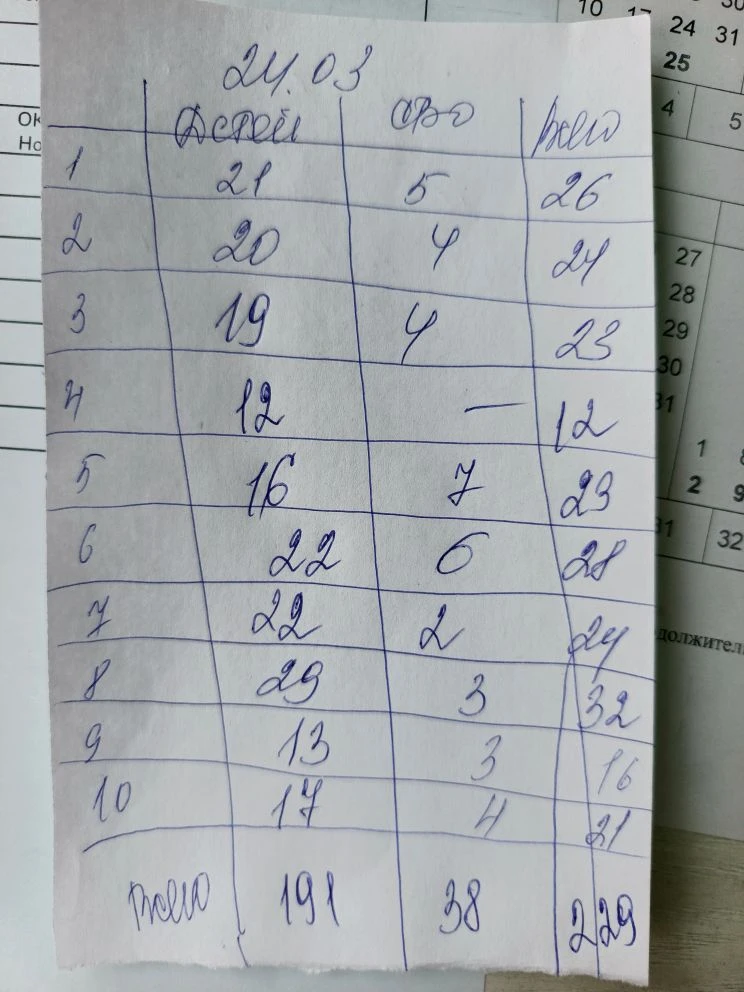 10 17 24 31
25
4 5
ОК
Но
24.03
Детей СВО Всего
1 21 5 26
2 20 4 24
3 19 4 23
4 12 — 12
5 16 7 23
6 22 6 28
7 22 2 24
8 29 3 32
9 13 3 16
10 17 4 21
Всего 191 38 229
27
28
29
30
31
1 8
2 9
31 32
должитель